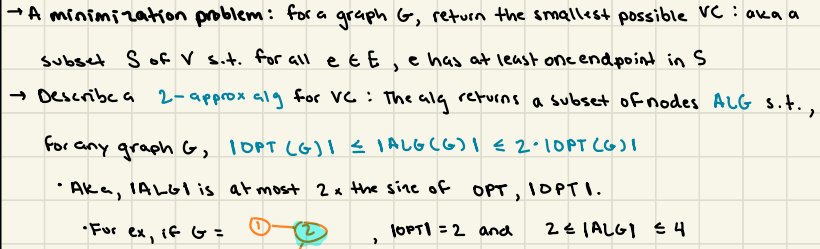 → A minimization problem: for a graph G, return the smallest possible VC : aka a
subset S of V s.t. for all e ∈ E, e has at least one endpoint in S
→ Describe a 2-approx alg for VC : The alg returns a subset of nodes ALG s.t.,
for any graph G, |OPT(G)| ≤ |ALG(G)| ≤ 2·|OPT(G)|
• Aka, |ALG| is at most 2x the size of OPT, |OPT|.
• For ex, if G = 1 2 , |OPT| = 2 and 2 ≤ |ALG| ≤ 4